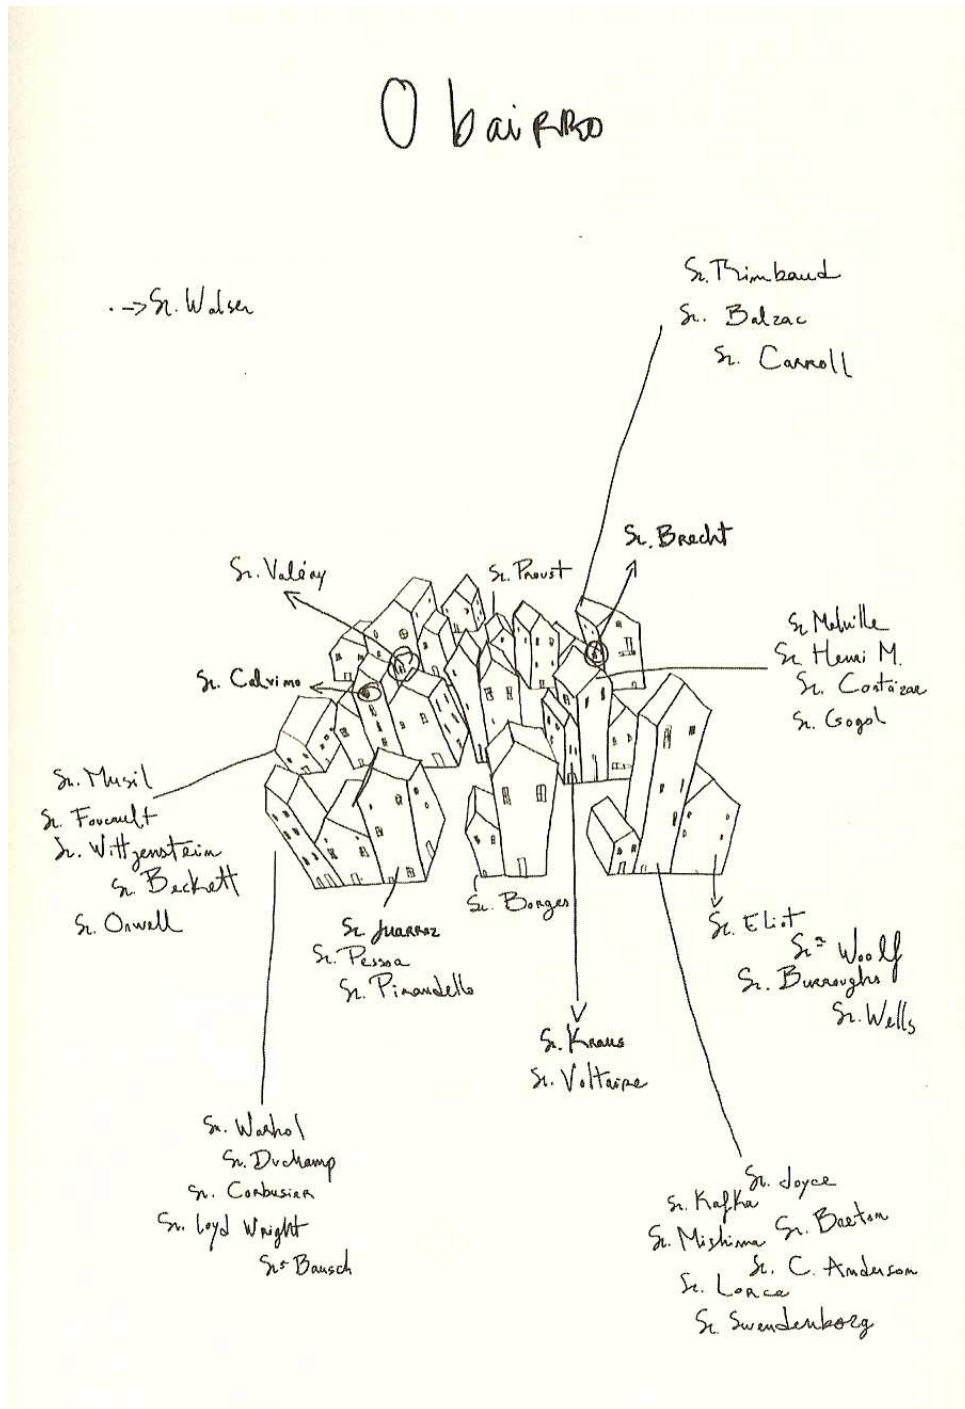 O bairro
Sr. Rimbaud
Sr. Balzac
Sr. Carroll
Sr. Walser
Sr. Brecht
Sr. Valéry
Sr. Proust
Sr. Calvino
Sr. Melville
Sr. Henri M.
Sr. Cortázar
Sr. Gogol
Sr. Musil
Sr. Foucault
Sr. Wittgenstein
Sr. Beckett
Sr. Orwell
Sr. Juarroz
Sr. Pessoa
Sr. Pirandello
Sr. Borges
Sr. Eliot
Srª Woolf
Sr. Burroughs
Sr. Wells
Sr. Kraus
Sr. Voltaire
Sr. Warhol
Sr. Duchamp
Sr. Corbusier
Sr. Loyd Wright
Srª Bausch
Sr. Joyce
Sr. Kafka
Sr. Mishima
Sr. Breton
Sr. C. Anderson
Sr. Lorca
Sr. Swendenborg